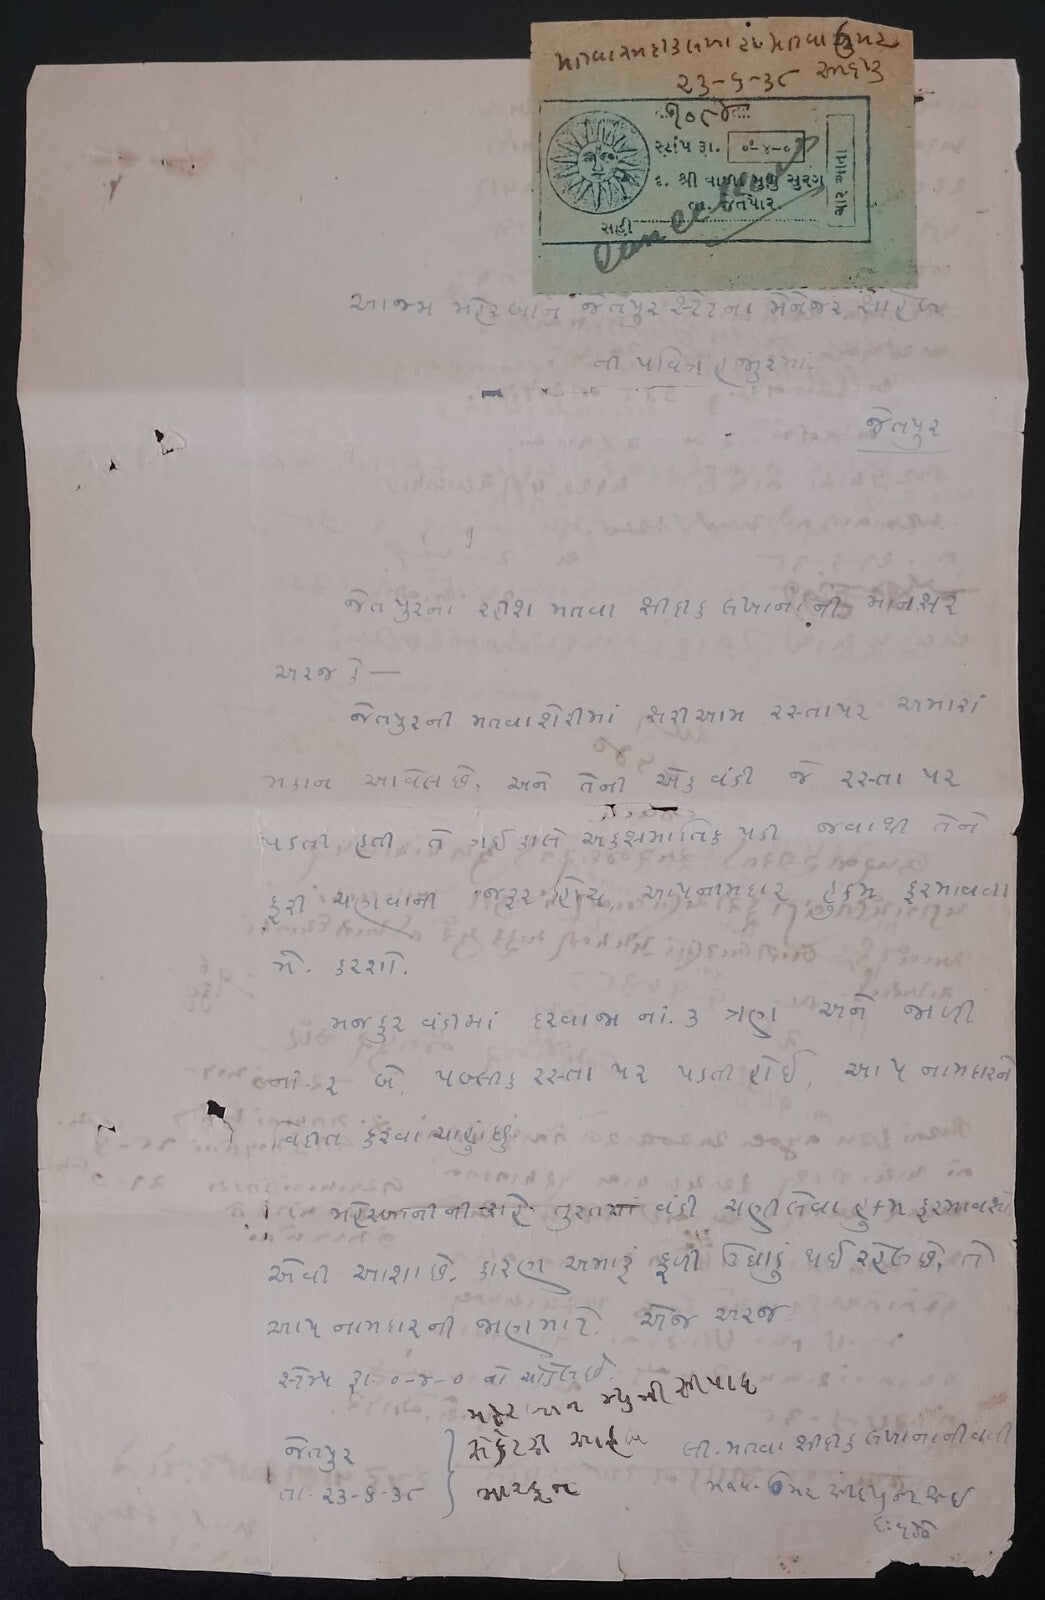 ૨૩-૬-૩૮
સ્ટાંપ રૂા. ૦-૪-૦
દ. શ્રી વાળા મુળુ સુરગ
તા. જેતપોર.
સહી
ચાર આના
Cancelled
આજમ મહેરબાન જેતપુર સ્ટેટના મેનેજર સાહેબ
ની પવિત્ર હજુરમાં.
જેતપુર
જેતપુરના રહીશ મતવા સીદીક લખાનાની માનસર
અરજ કે —
જેતપુરની મતવાશેરીમાં સરીઆમ રસ્તાપર અમારાં
મકાન આવેલ છે. અને તેની એક વંડી જે રસ્તા પર
પડતી હતી તે ગઈ કાલે અકસમાતિક પડી જવાથી તેને
ફરી ચણવાની જરૂર હોય, આપનામદાર હુકમ ફરમાવવા
મે. કરશો.
મજકુર વંડીમાં દરવાજા નં. ૩ ત્રણ અને જાળી
નં. ૨ બે, પબ્લીક રસ્તા પર પડતી હોઈ, આપ નામદારને
વિદીત કરવા ચાહું છું.
મહેરબાનીની રાહે તુરતમાં વંડી ચણી લેવા હુકમ ફરમાવશો
એવી આશા છે. કારણ અમારૂં ફળી ઉઘાડું થઈ રહેલ છે, તે
આપ નામદારની જાણ માટે. એજ અરજ
સ્ટેમ્પ રૂા. ૦-૪-૦ નો ચોડેલ છે.
મહેરબાન મ્યુનીસીપાલ
જેતપુર સેક્રેટરી સાહેબ લી. મતવા સીદીક લખાનાની વતી
તા. ૨૩-૬-૩૮ મારફત